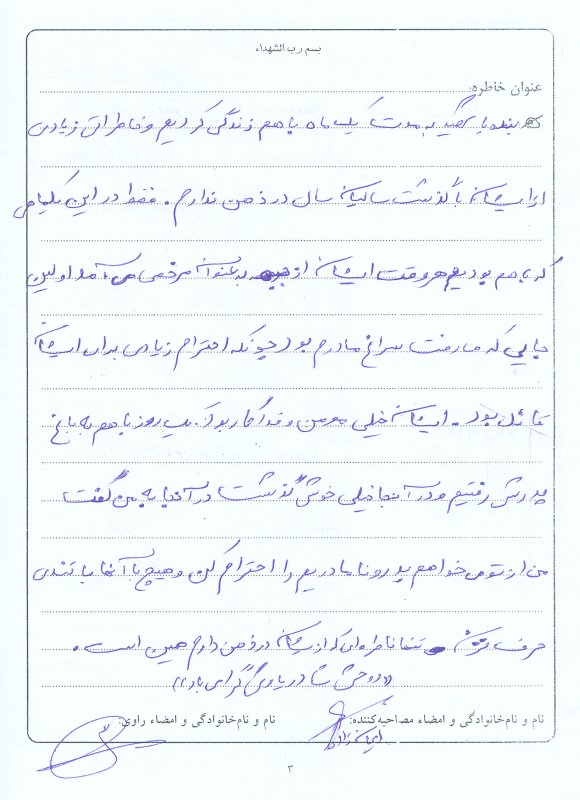 بسم رب الشهداء
عنوان خاطره:
بنده با شهید به مدت یک ماه با هم زندگی کردیم و خاطرات زیادی
از ایشان با گذشت سالیان سال در ذهن ندارم. فقط در این یکماهی
که با هم بودیم هر وقت ایشان از جبهه به عنوان مرخصی می آمد اولین
جایی که می رفت سراغ مادرم بود چونکه احترام زیادی برای ایشان
قائل بود. ایشان خیلی مومن و فداکار بود. یک روز با هم به باغ
پدرش رفتیم و در آنجا خیلی خوش گذشت در آنجا به من گفت
من از تو می خواهم پدر و نامادریم را احترام کن و هیچ با آنها با تندی
حرف نزن تنها خاطره ای که از ایشان در ذهن دارم همین است.
((روحش شاد و یادش گرامی باد))
نام و نام خانوادگی و امضاء مصاحبه کننده:
نام و نام خانوادگی و امضاء راوی:
۳